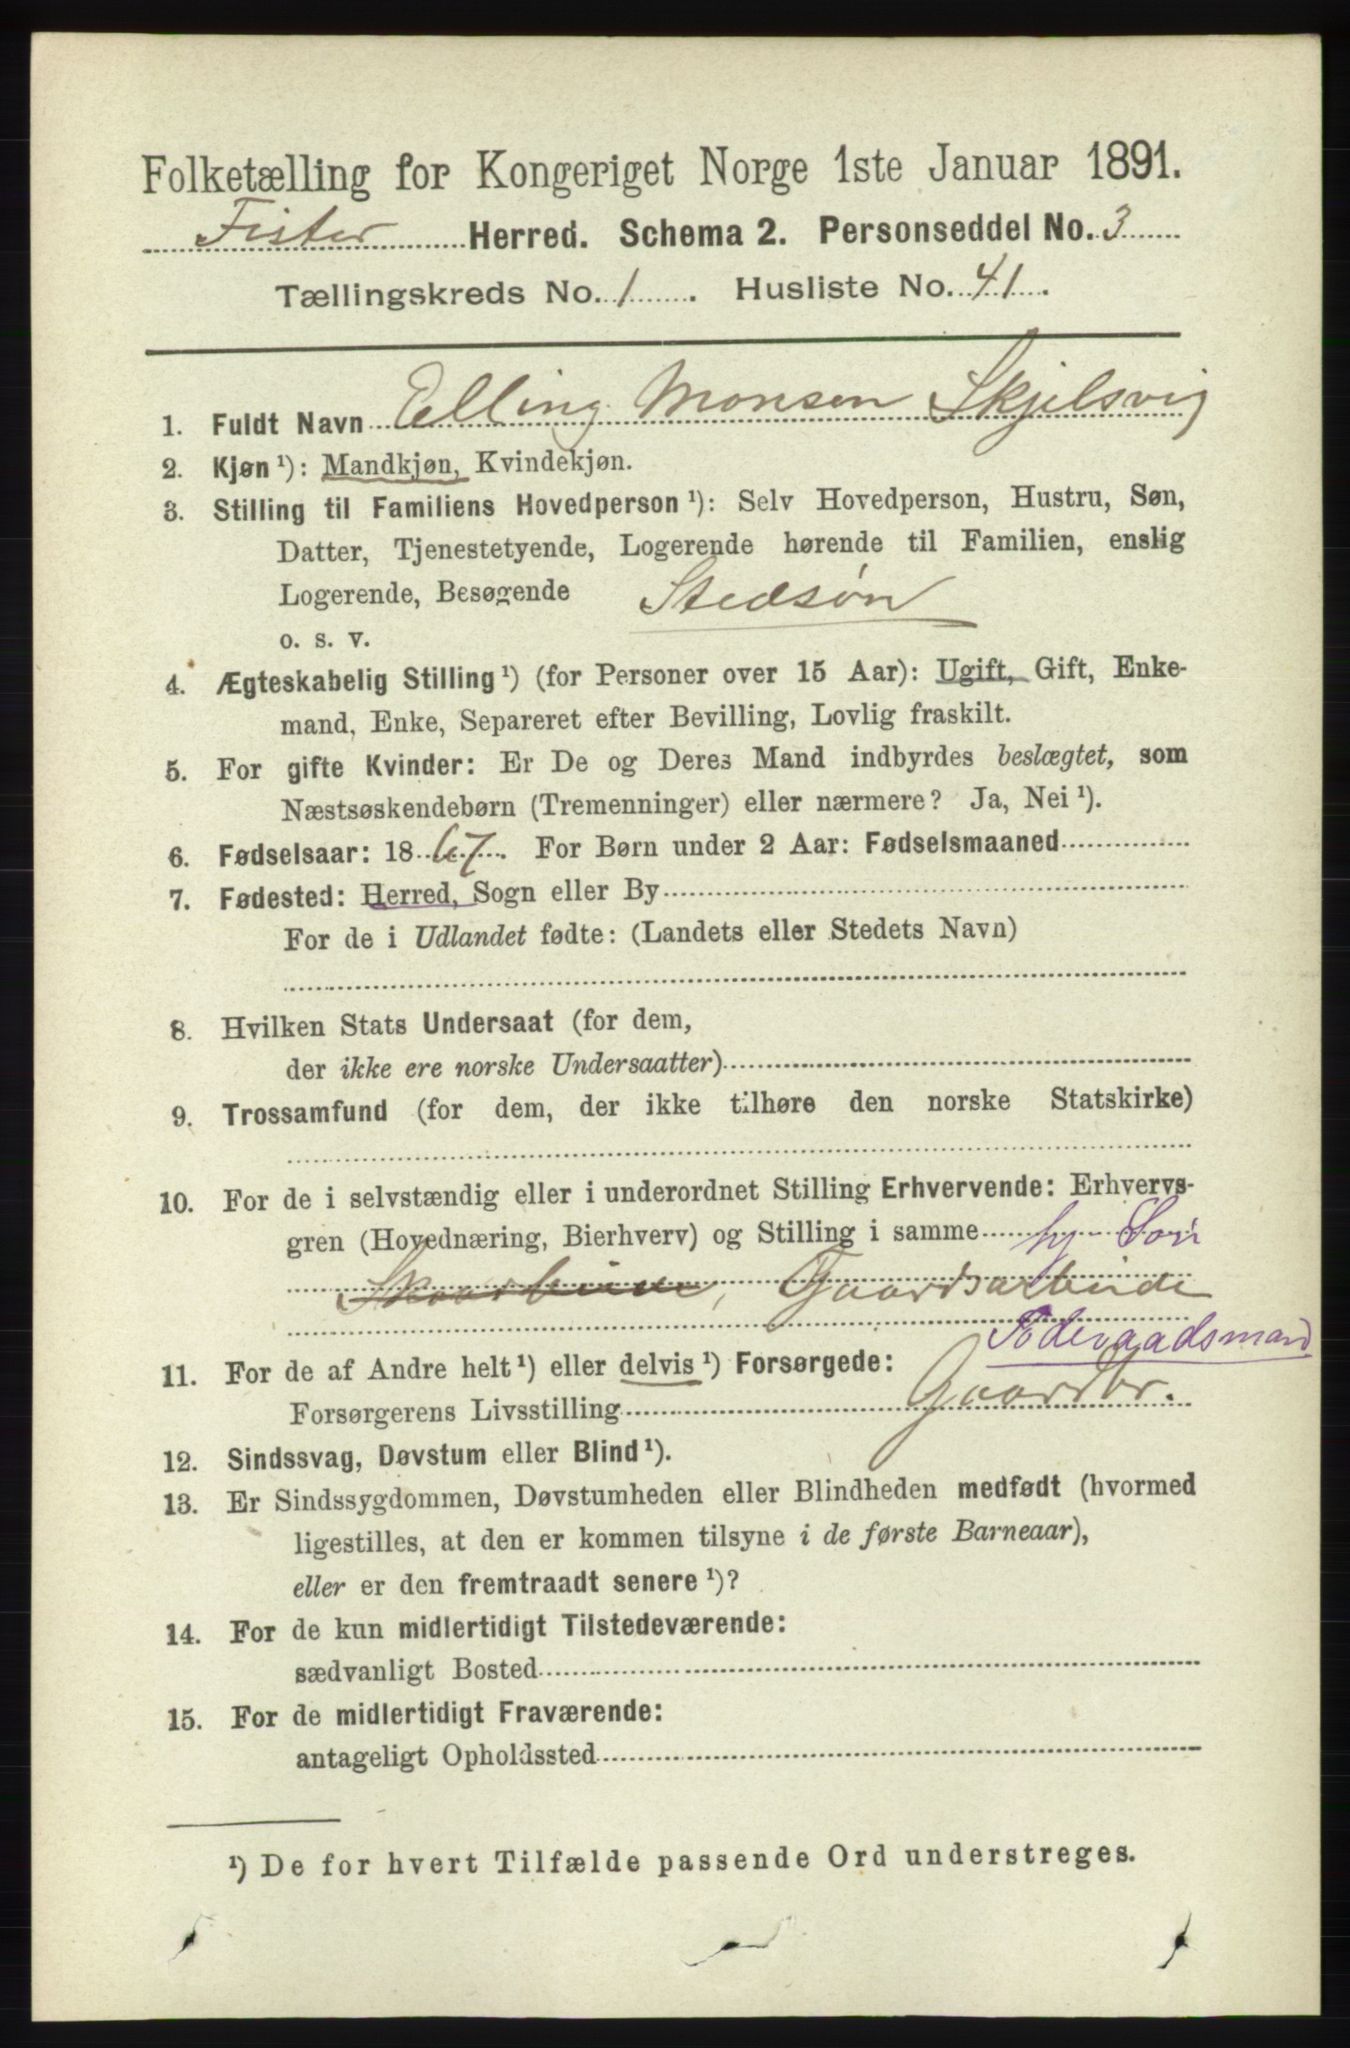 Folketælling for Kongeriget Norge 1ste Januar 1891.
Fister Herred. Schema 2. Personseddel No. 3
Tællingskreds No. 1. Husliste No. 41.
1. Fuldt Navn Elling Monsen Skjelsvig
2. Kjøn ¹): Mandkjøn, Kvindekjøn.
3. Stilling til Familiens Hovedperson ¹): Selv Hovedperson, Hustru, Søn,
Datter, Tjenestetyende, Logerende hørende til Familien, enslig
Logerende, Besøgende Stedsøn
o. s. v.
4. Ægteskabelig Stilling ¹) (for Personer over 15 Aar): Ugift, Gift, Enke-
mand, Enke, Separeret efter Bevilling, Lovlig fraskilt.
5. For gifte Kvinder: Er De og Deres Mand indbyrdes beslægtet, som
Næstsøskendebørn (Tremenninger) eller nærmere? Ja, Nei ¹).
6. Fødselsaar: 1867. For Børn under 2 Aar: Fødselsmaaned
7. Fødested: Herred, Sogn eller By
For de i Udlandet fødte: (Landets eller Stedets Navn)
8. Hvilken Stats Undersaat (for dem,
der ikke ere norske Undersaatter)
9. Trossamfund (for dem, der ikke tilhøre den norske Statskirke)
10. For de i selvstændig eller i underordnet Stilling Erhvervende: Erhvervs-
gren (Hovednæring, Bierhverv) og Stilling i samme hj Søn
Gaardsarbeide
Føderaadsmand
11. For de af Andre helt ¹) eller delvis ¹) Forsørgede:
Forsørgerens Livsstilling Gaardbr.
12. Sindssvag, Døvstum eller Blind ¹).
13. Er Sindssygdommen, Døvstumheden eller Blindheden medfødt (hvormed
ligestilles, at den er kommen tilsyne i de første Barneaar),
eller er den fremtraadt senere ¹)?
14. For de kun midlertidigt Tilstedeværende:
sædvanligt Bosted
15. For de midlertidigt Fraværende:
antageligt Opholdssted
¹) De for hvert Tilfælde passende Ord understreges.